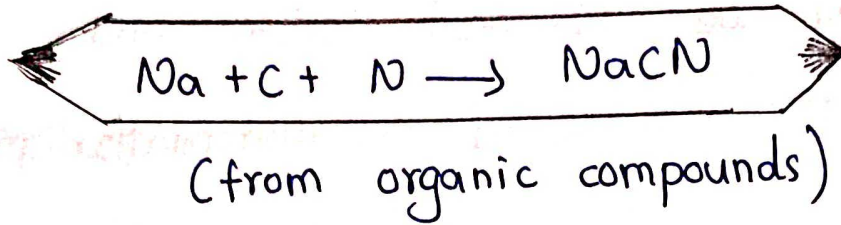 Na + C + N ⟶ NaCN
(from organic compounds)